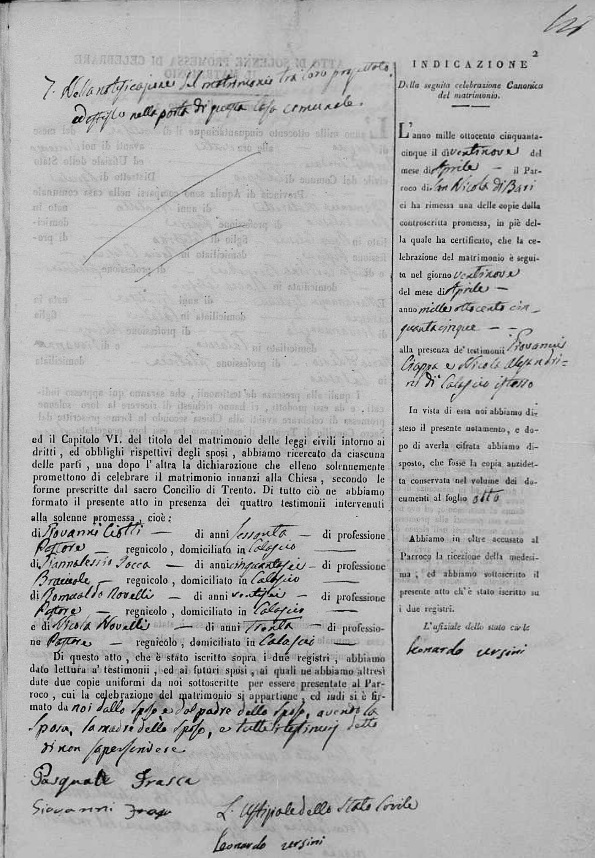 2
7. Della notificazione del matrimonio tra loro progettato,
ed affisso nella porta di questa Casa comunale.
ed il Capitolo VI. del titolo del matrimonio delle leggi civili intorno ai
dritti, ed obblighi rispettivi degli sposi, abbiamo ricercato da ciascuna
delle parti, una dopo l'altra la dichiarazione che elleno solennemente
promettono di celebrare il matrimonio innanzi alla Chiesa, secondo le
forme prescritte dal sacro Concilio di Trento. Di tutto ciò ne abbiamo
formato il presente atto in presenza dei quattro testimonii intervenuti
alla solenne promessa, cioè:
di Giovanni Ciotti — di anni sessanta — di professione
Pastore — regnicolo, domiciliato in Calascio
di Giannalessio — di anni cinquantasei — di professione
Bracciale — regnicolo, domiciliato in Calascio
di Romualdo Novelli — di anni ventisei — di professione
Pastore — regnicolo, domiciliato in Calascio —
e di Nicola Novelli — di anni Trenta — di professio-
ne Pastore — regnicolo, domiciliato in Calascio —
Di questo atto, che è stato iscritto sopra i due registri, abbiamo
dato lettura a' testimonii, ed ai futuri sposi, ai quali ne abbiamo altresì
date due copie uniformi da noi sottoscritte per essere presentate al Par-
roco, cui la celebrazione del matrimonio si appartiene, ed indi si è fir-
mato da noi dallo sposo e dal padre dello sposo, avendo la
sposa, la madre dello sposo, e tutti i testimonj detto
di non saper scrivere.
Pasquale Frasca
Giovanni
L'Uffiziale dello Stato Civile
Leonardo Ursini
INDICAZIONE
Della seguita celebrazione Canonica
del matrimonio.
L'anno mille ottocento cinquanta-
cinque il dì ventinove del
mese di Aprile — il Par-
roco di San Nicola di Bari
ci ha rimessa una delle copie della
controscritta promessa, in piè del-
la quale ha certificato, che la ce-
lebrazione del matrimonio è segui-
ta nel giorno ventinove
del mese di Aprile —
anno mille ottocento cin-
quantacinque — —
alla presenza de' testimonii Giovanni
Ciappa e Nicola Alesandri-
ni di Calascio istesso
In vista di essa noi abbiamo di-
steso il presente notamento, e do-
po di averla cifrata abbiamo di-
sposto, che fosse la copia antidet-
ta conservata nel volume dei do-
cumenti al foglio otto
Abbiamo in oltre accusato al
Parroco la ricezione della medesi-
ma, ed abbiamo sottoscritto il
presente atto ch'è stato iscritto su
i due registri.
L'ufiziale dello stato civile
Leonardo Ursini